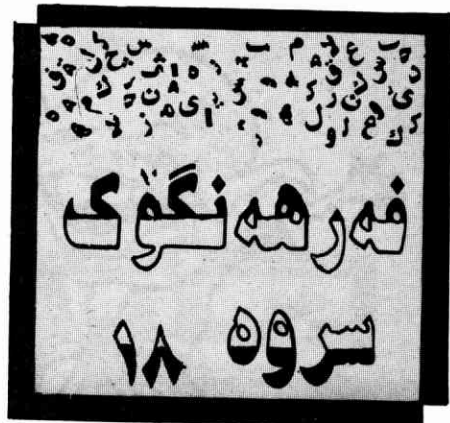 فەرهەنگۆک
سروە ١٨